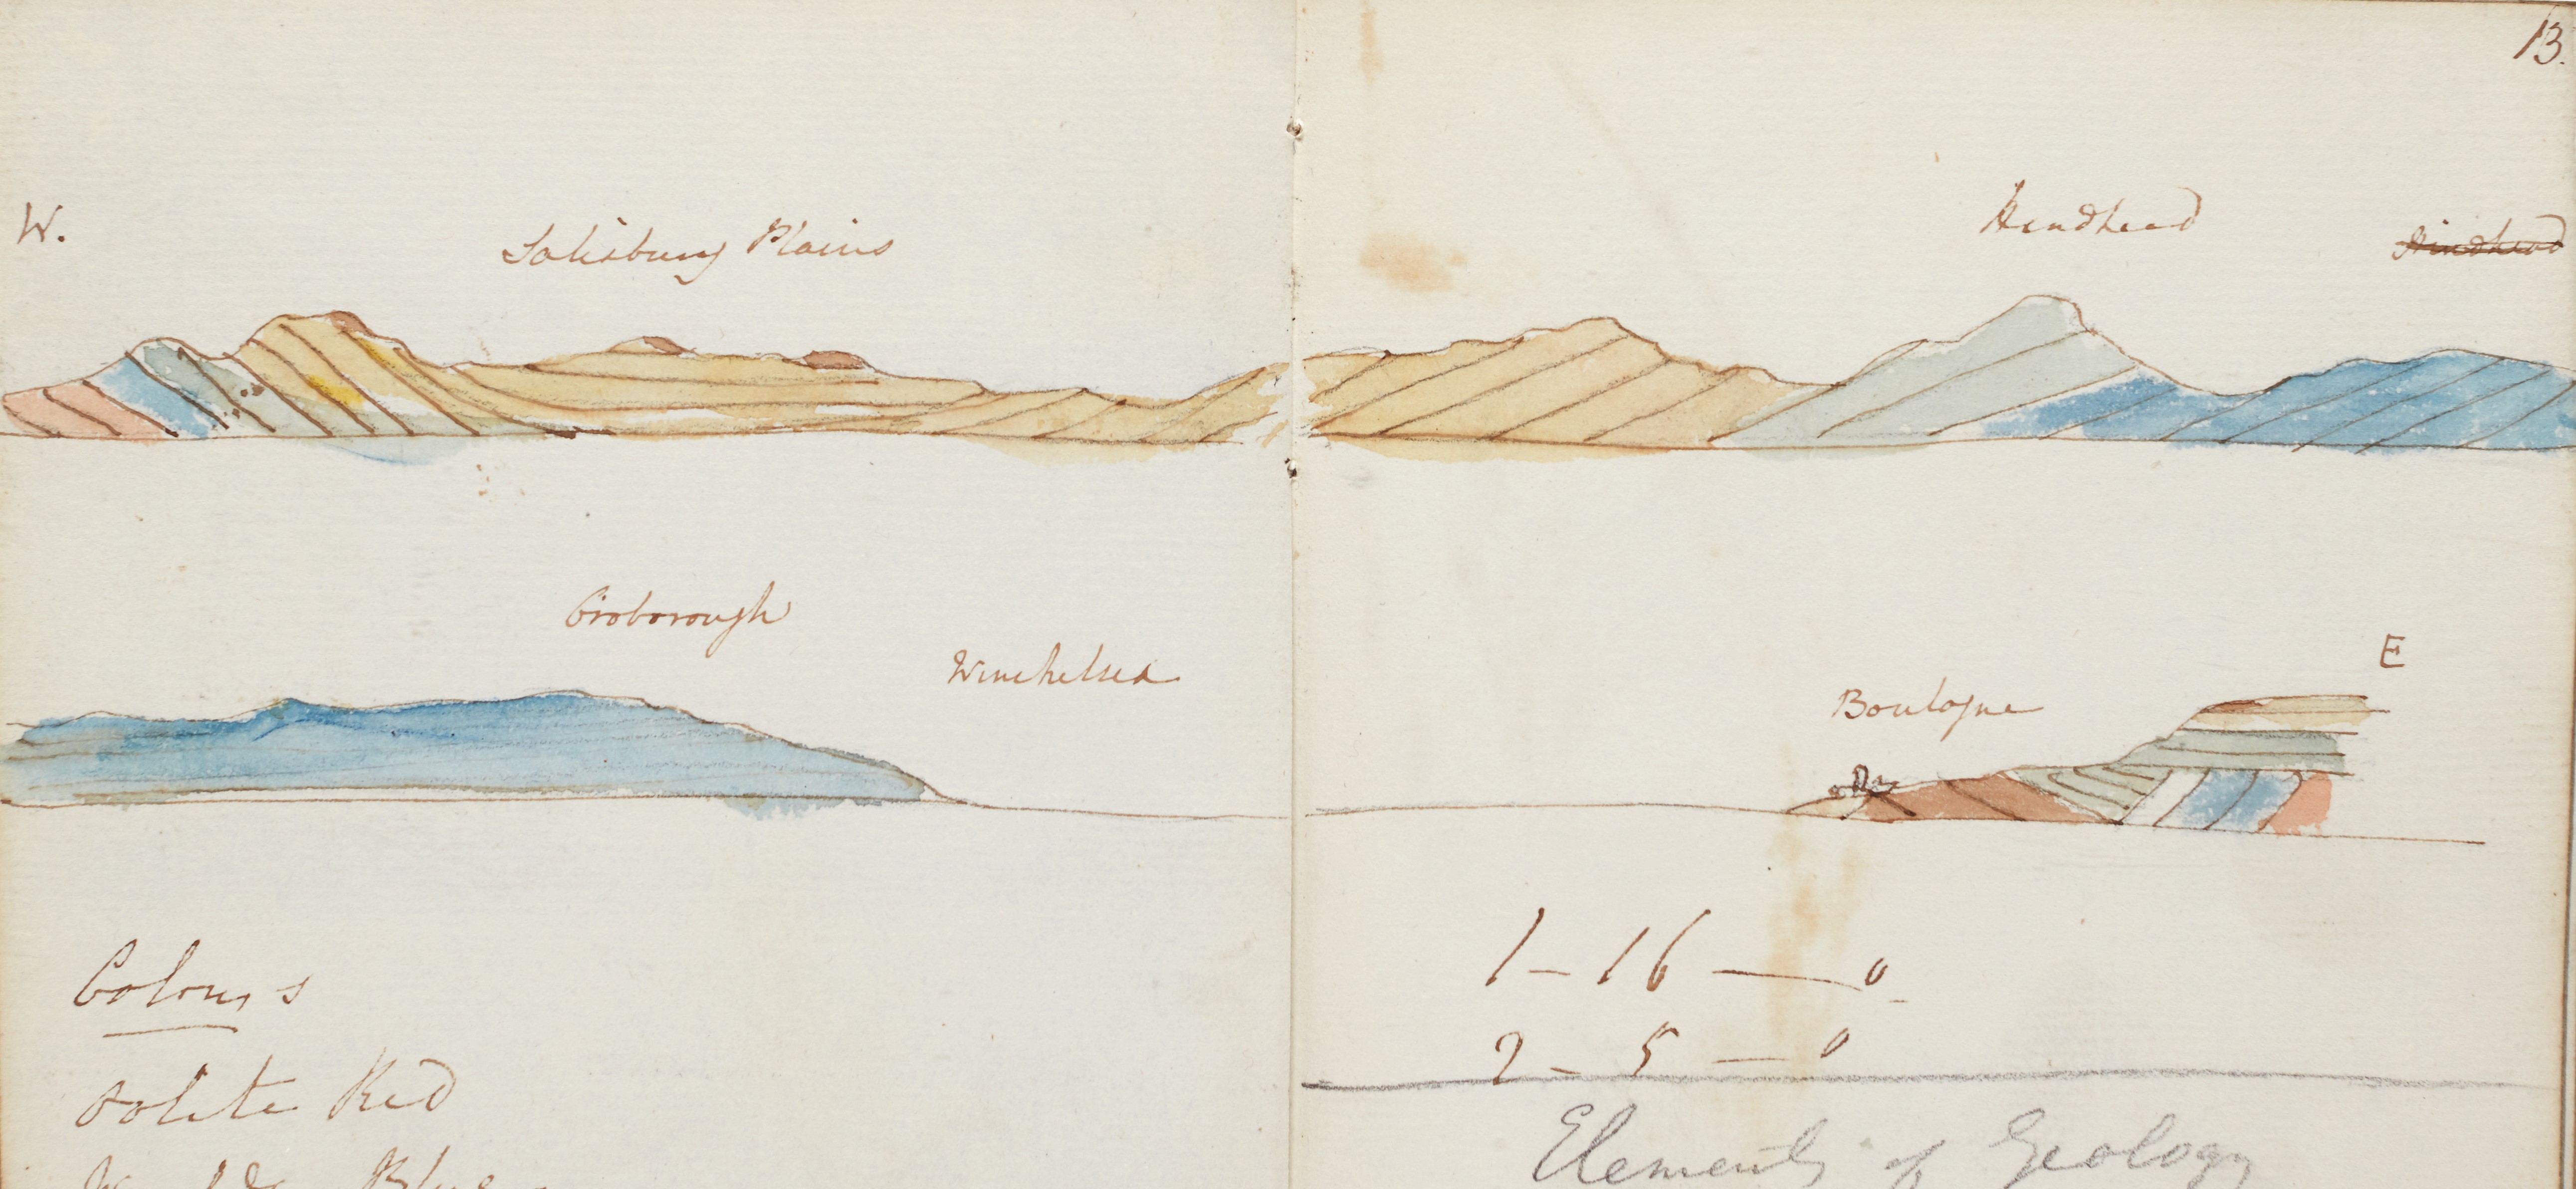 13.
W.
Salisbury Plains
Hindhead
Hindhead
Croborough
Winchelsea
Boulogne
E
Colours
Oolite Red
Blue
1 – 16 — 0
2 – 5 — 0
Elements of Geology